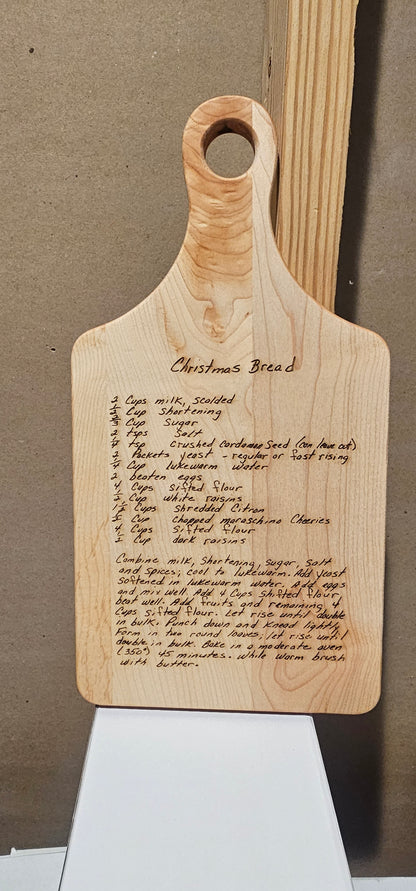 Christmas Bread
2 Cups milk, scalded
1/2 Cup Shortening
Cup Sugar
2 tsps Salt
tsp Crushed Cardamon Seed (can leave out)
2 Packets yeast - regular or fast rising
Cup lukewarm water
2 beaten eggs
4 Cups sifted flour
1/2 Cup white raisins
Cups Shredded Citron
Cup Chopped maraschino Cheeries
4 Cups Sifted flour
1/2 Cup dark raisins
Combine milk, Shortening, sugar, salt
and spices; cool to lukewarm. Add yeast
softened in lukewarm water. Add eggs
and mix well. Add 4 Cups Shifted flour,
beat well. Add fruits and remaining 4
Cups Sifted flour. Let rise until double
in bulk. Punch down and Knead lightly
Form in two round loaves; let rise until
double in bulk. Bake in a moderate oven
(350°) 45 minutes. While warm brush
with butter.